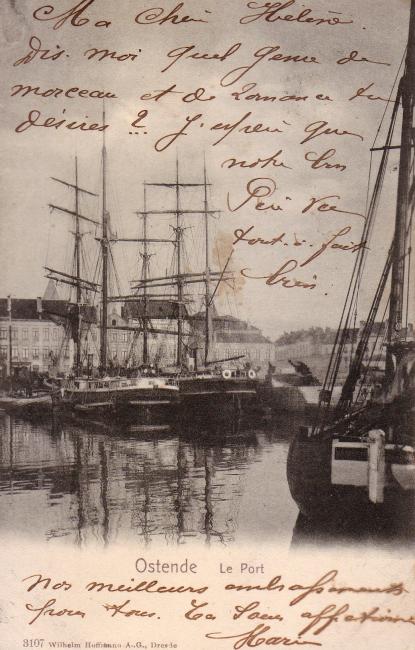 Ma Chère Hélène.
Dis. moi quel genre de
morceau et de Romance tu
désires ? J'espère que
notre bon
Père va
tout-à-fait
bien.
Ostende Le Port
Nos meilleurs embrassements
pour tous. Ta Sœur affectionnée
Marie
3107 Wilhelm Hoffmann A.-G., Dresde